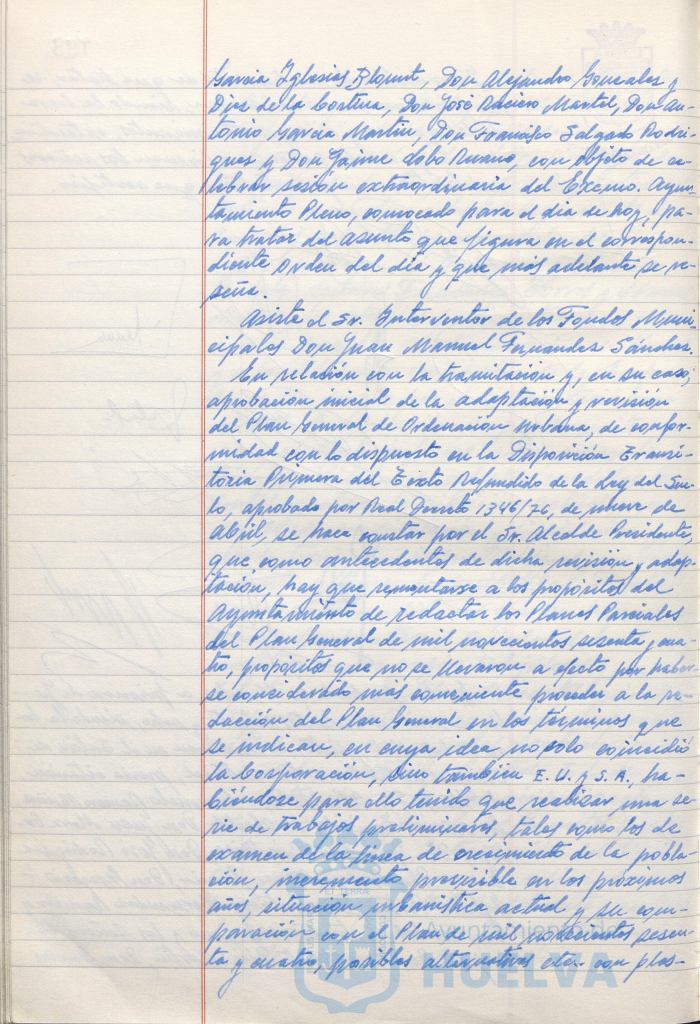 Garcia Iglesias Blount, Don Alejandro Gonzales y
Diez de la Cortina, Don José Ruciero Martel, Don An-
tonio Garcia Martin, Don Francisco Salgado Rodri-
guez y Don Jaime Lobo Ruano, con objeto de ce-
lebrar sesión extraordinaria del Excmo. Ayun-
tamiento Pleno, convocado para el dia de hoy, pa-
ra tratar del asunto que figura en el correspon-
diente orden del día y que más adelante se re-
seña.
Asiste el Sr. Interventor de los Fondos Muni-
cipales Don Juan Manuel Fernandez Sánchez.
En relación con la tramitación y, en su caso,
aprobación inicial de la adaptación y revisión
del Plan General de Ordenación Urbana, de confor-
midad con lo dispuesto en la Disposición Transi-
toria Primera del Texto Refundido de la Ley del Sue-
lo, aprobado por Real Decreto 1346/76, de nueve de
Abril, se hace constar por el Sr. Alcalde Presidente,
que, como antecedentes de dicha revisión y adap-
tación, hay que remontarse a los propósitos del
Ayuntamiento de redactar los Planes Parciales
del Plan General de mil novecientos sesenta y cua-
tro, propósitos que no se llevaron a efecto por haber-
se considerado más conveniente proceder a la re-
dacción del Plan General en los términos que
se indican, en cuya idea no solo coincidió
la Corporación, sino tambien E.U. y S.A., ha-
biéndose para ello tenido que realizar una se-
rie de trabajos preliminares, tales como los de
examen de la línea de crecimiento de la pobla-
ción, incremento previsible en los próximos
años, situación urbanística actual y su com-
paración con el Plan de mil novecientos sesen-
ta y cuatro, posibles alternativas etc. con plas-
Ayuntamiento de
HUELVA